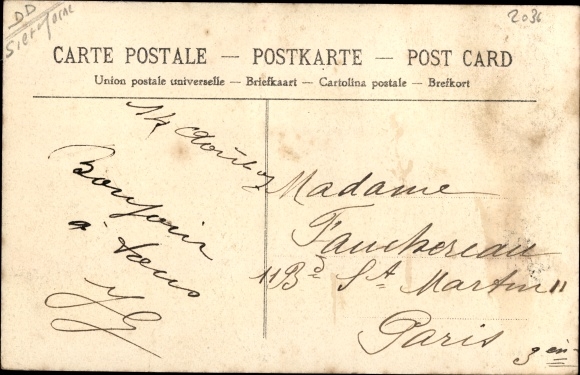 DD
2036
CARTE POSTALE — POSTKARTE — POST CARD
Union postale universelle — Briefkaart — Cartolina postale — Brefkort
14
Bonjour
à tous
Madame
Fauchereau
11 Bd St Martin 11
Paris
3 en